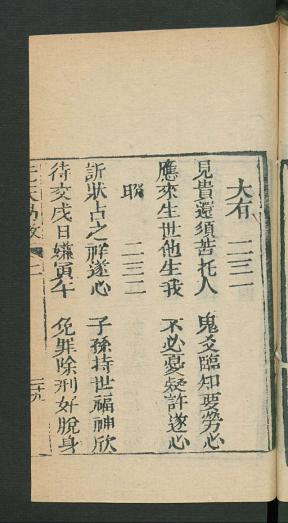 大有 二三一
見貴還須苦托人 鬼爻臨知要勞心
應來生世他生我 不必憂疑許遂心
聯 二三二
訢狀占之祥遂心 子孫持世福神欣
待交戌日嫌寅午 免罪除刑好脫身